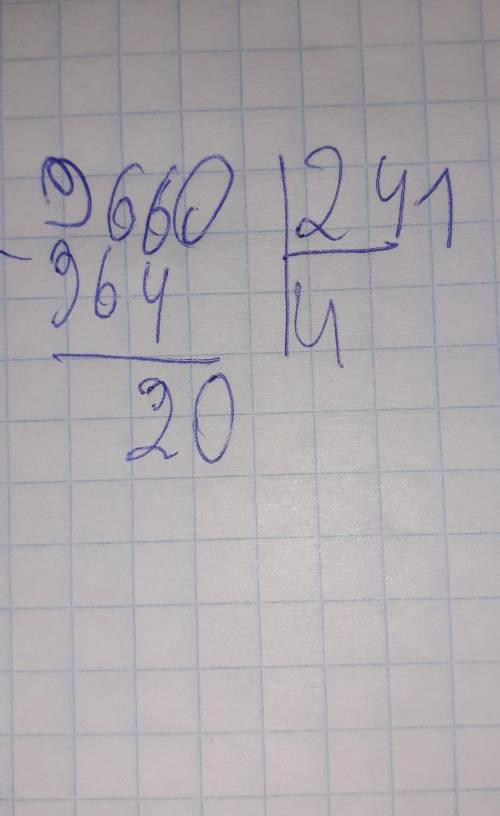 9660 241
- 964 4
20